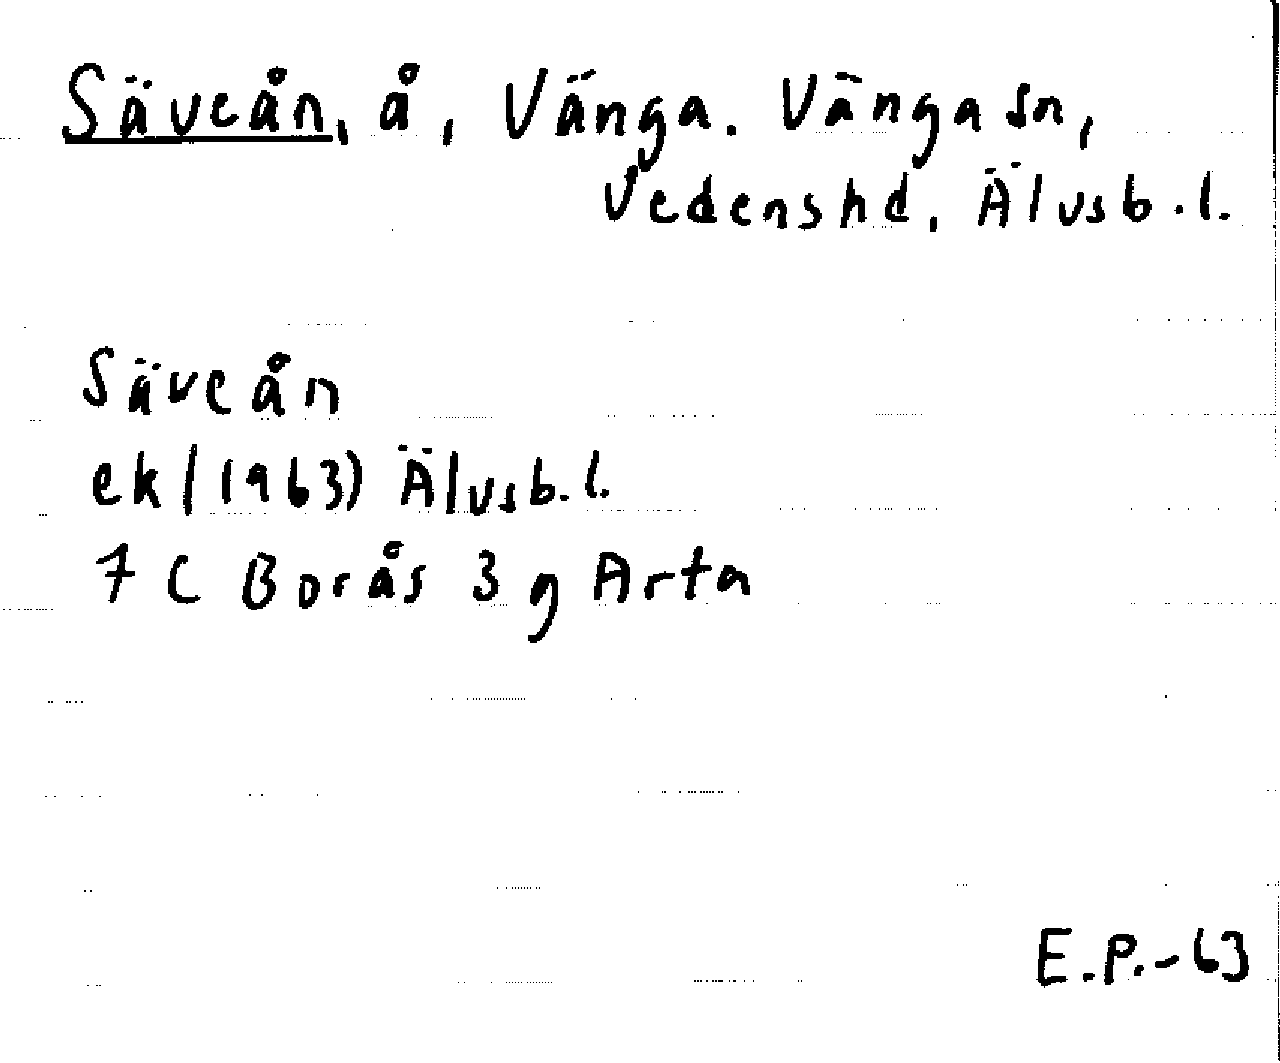 Säveån, å, Vånga. Vånga sn,
Vedenshd, Älvsb.l.
Säveån
ek/(1963) Älvsb.l.
7 C Borås 3 g Arta
E.P.-63